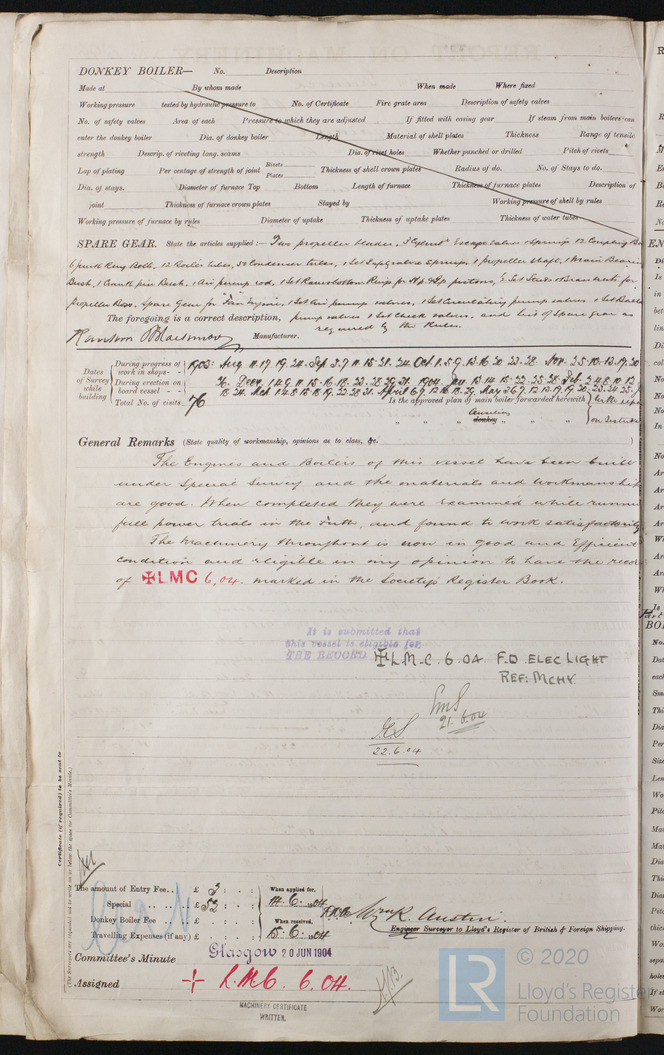 DONKEY BOILER— No. Description
Made at By whom made When made Where fixed
Working pressure tested by hydraulic pressure to No. of Certificate Fire grate area Description of safety valves
No. of safety valves Area of each Pressure to which they are adjusted If fitted with easing gear If steam from main boilers can
enter the donkey boiler Dia. of donkey boiler Length Material of shell plates Thickness Range of tensile
strength Descrip. of riveting long. seams Dia. of rivet holes Whether punched or drilled Pitch of rivets
Lap of plating Per centage of strength of joint Rivets Plates Thickness of shell crown plates Radius of do. No. of Stays to do.
Dia. of stays. Diameter of furnace Top Bottom Length of furnace Thickness of furnace plates Description of
joint Thickness of furnace crown plates Stayed by Working pressure of shell by rules
Working pressure of furnace by rules Diameter of uptake Thickness of uptake plates Thickness of water tubes
SPARE GEAR. State the articles supplied:— Two propeller blades, Escape valve Springs 12 Coupling
6 junk Ring Bolts, 12 Boiler tubes, 50 Condenser tubes, 1 Set Safety valve Springs 1 propeller shaft, 1 Main Bearing
Bush, 1 Crank pin Bush, 1 Air pump rod, 1 Set Ramsbottom Rings for pistons, Set Studs &
propeller Boss, Spare Gear for Fan Engine, 1 Set Air pump valves, 1 Set Circulating pump valves 1 Set
The foregoing is a correct description, pump valves 1 Set check valves, and of Spare gear as
required by the Rules.
Manufacturer.
Dates of Survey while building
During progress of work in shops - - 1903: Aug 11. 17. 19. 24. Sep. 3. 7. 11. 15. 21. 24. Oct. 1. 5. 9. 13. 16. 20. 23. 28. Nov.
During erection on board vessel - - -
Total No. of visits 76 Is the approved plan of main boiler forwarded herewith
" " " donkey Auxiliary " "
General Remarks (State quality of workmanship, opinions as to class, &c.
The Engines and Boilers of this vessel have been built
under Special Survey and the materials and workmanship
are good. When completed they were examined while
full power trials in the Firth, and found to work satisfactorily
The Machinery throughout is now in good and Efficient
condition and eligible in my opinion to have the
of ✠LMC 6,04. marked in the Society's Register Book.
It is submitted that
this vessel is eligible for
THE RECORD ✠L.M.C. 6.04. F.D. ELEC LIGHT
REF: MCHY.
21.6.04
22.6.04
Certificate (if required) to be sent to
The amount of Entry Fee . . £ 3 : : When applied for,
Special . . . . £ 52 : : 14.6.1904
Donkey Boiler Fee . . . £ : : When received,
Travelling Expenses (if any) £ : : 15.6.1904
Wm R. Austin.
Engineer Surveyor to Lloyd's Register of British & Foreign Shipping.
Committee's Minute Glasgow 20 JUN 1904
Assigned + L.M.C. 6.04.
MACHINERY CERTIFICATE
WRITTEN.
LR
© 2020
Lloyd's Register
Foundation